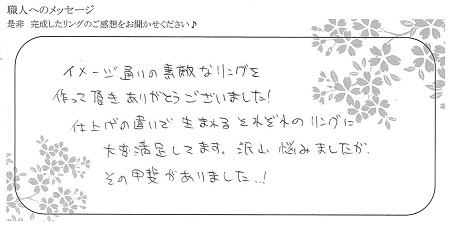 職人へのメッセージ
是非 完成したリングのご感想をお聞かせください♪
イメージ通りの素敵なリングを
作って頂きありがとうございました!
仕上げの違いで生まれるそれぞれのリングに
大変満足してます。沢山悩みましたが、
その甲斐がありました..!